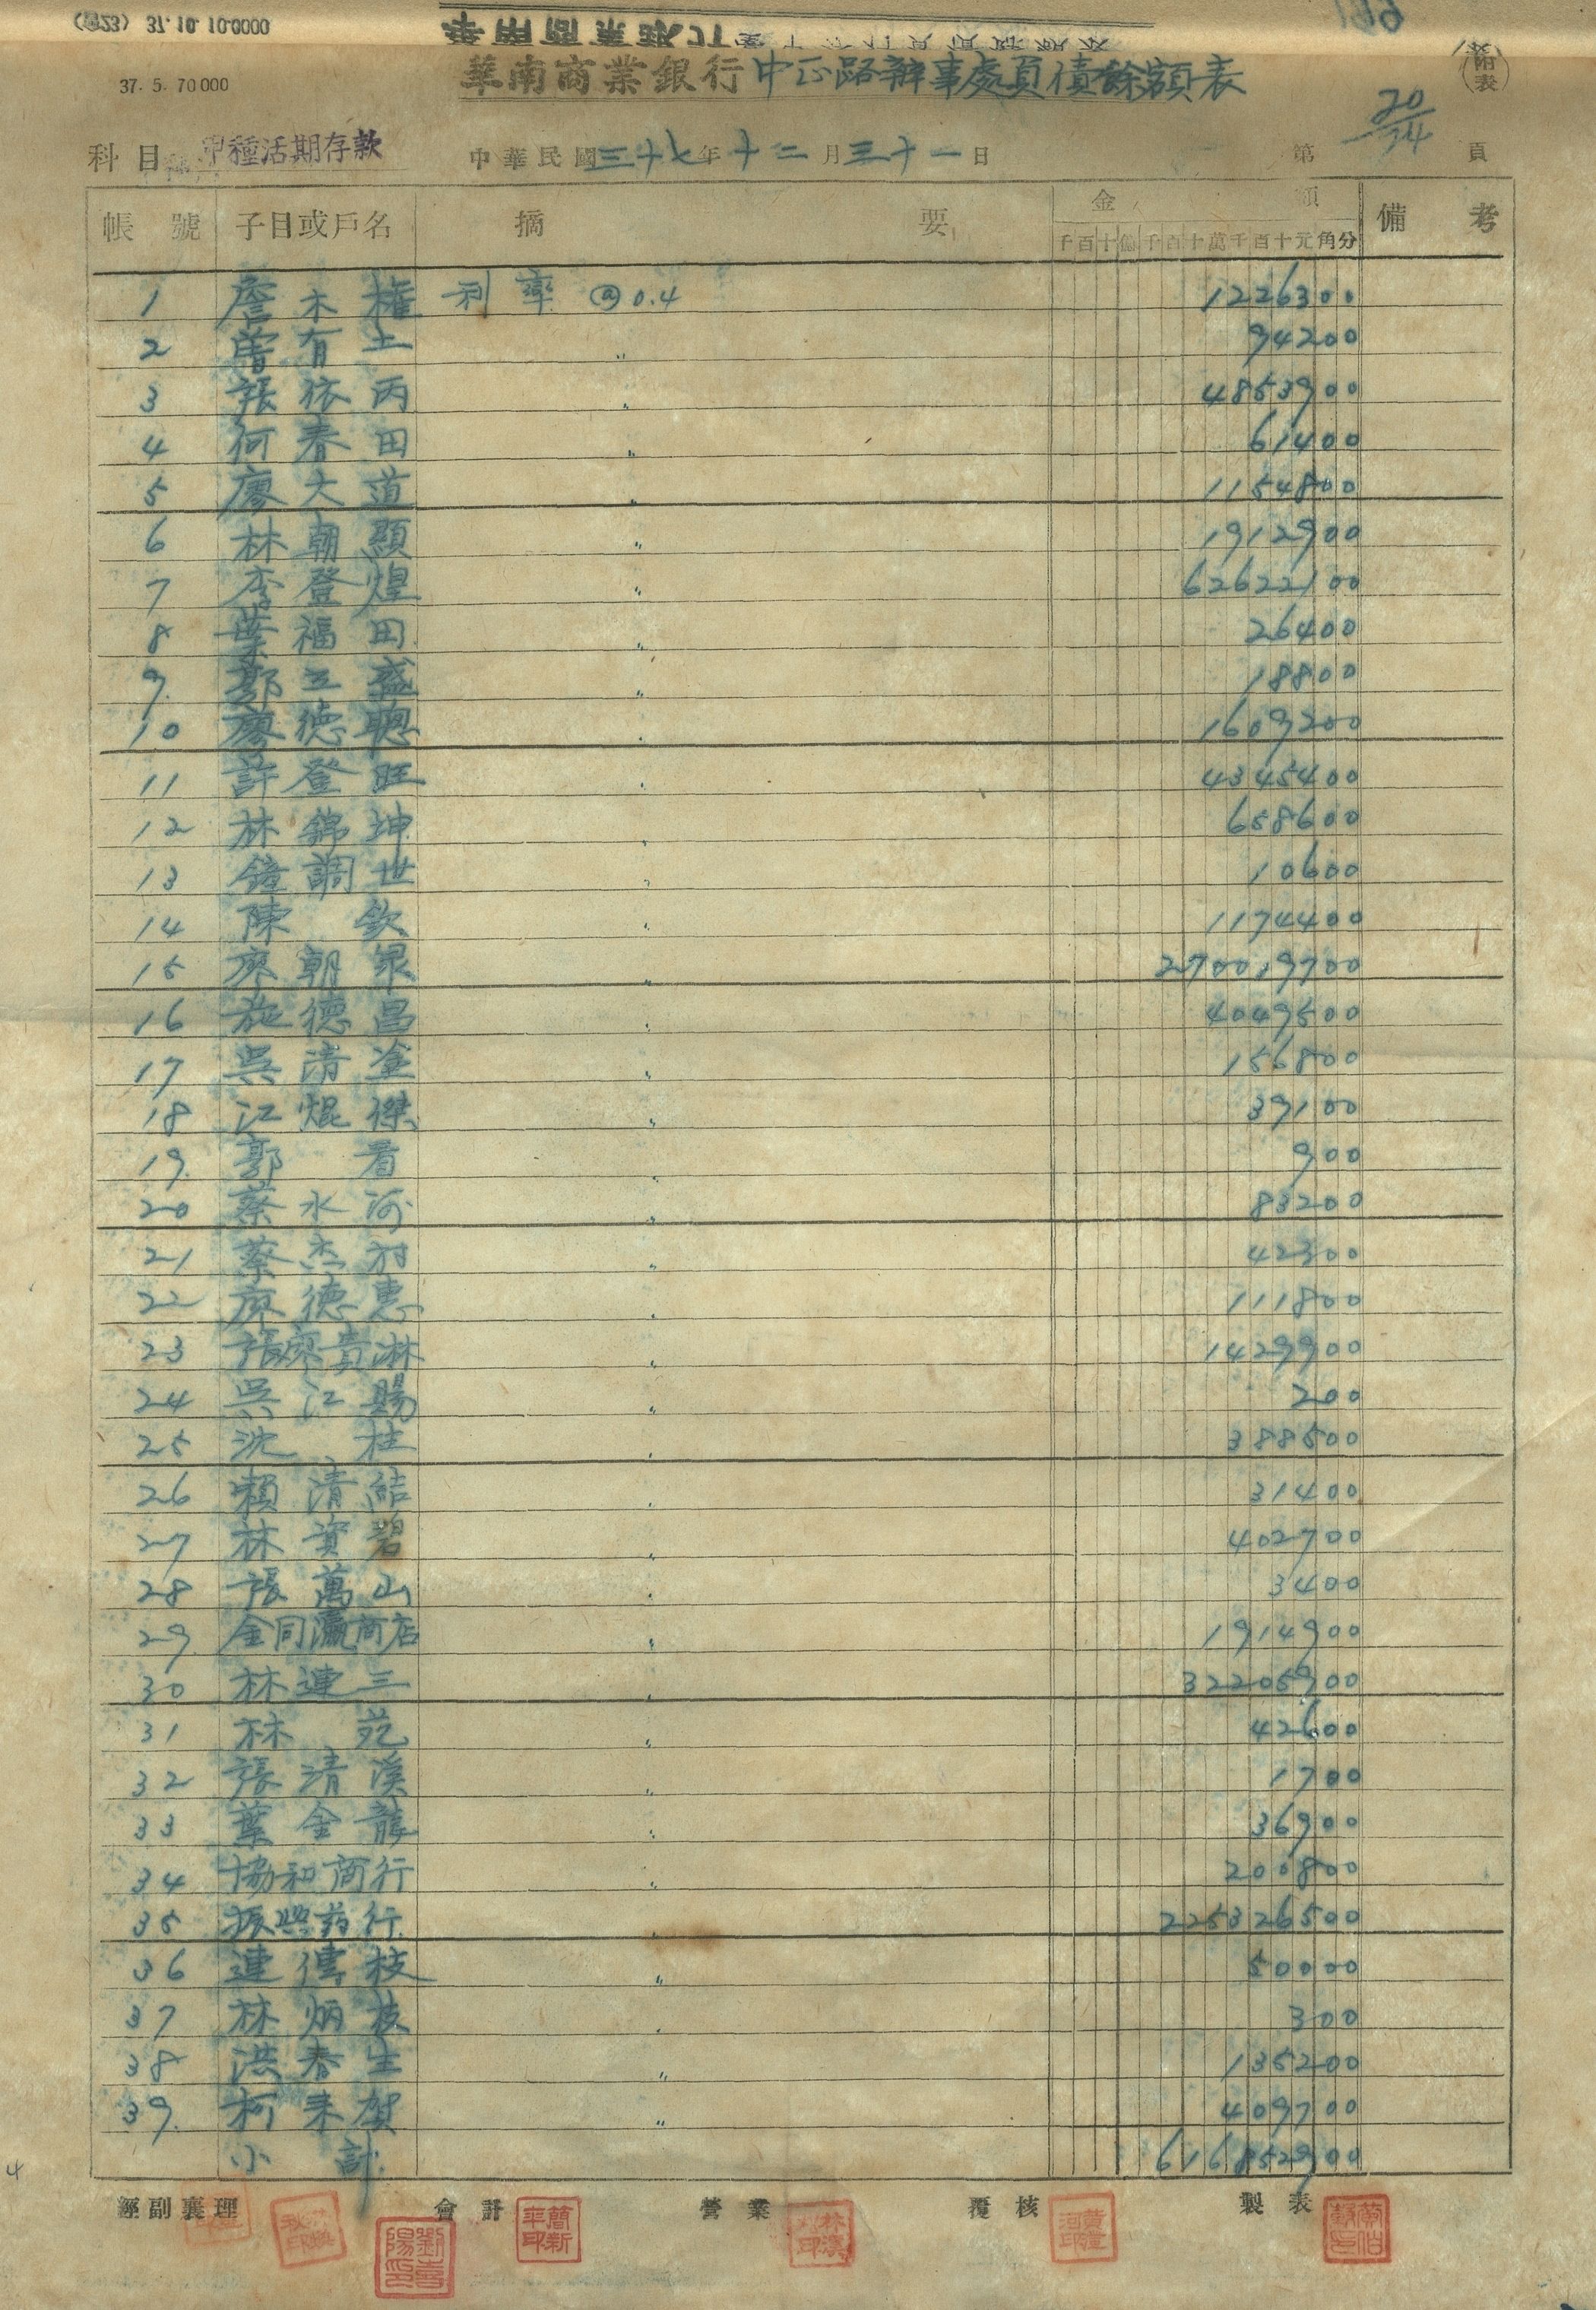 (華23) 37.10.10.0000
37.5.70000
華南商業銀行中正路辦事處負債餘額表
(附表)
科目 甲種活期存款 中華民國三十七年十二月三十一日 第 20/34 頁
帳號 子目或戶名 摘要 金額 備考
千百十億千百十萬千百十元角分
1 詹木權 利率 @0.4 1226300
2 曾有土 〃 94200
3 張依丙 〃 4853900
4 何春田 〃 61400
5 廖大道 〃 1154800
6 林朝顯 〃 1912900
7 李登煌 〃 62622100
8 葉福田 〃 26400
9 郭五盛 〃 18800
10 廖德聰 〃 1609200
11 許登旺 〃 4345400
12 林錦坤 〃 658600
13 鐘調世 〃 10600
14 陳欽 〃 1174400
15 廖朝泉 〃 270019700
16 施德昌 〃 4049500
17 吳清塗 〃 156800
18 江焜傑 〃 39100
19 郭看 〃 900
20 蔡水河 〃 83200
21 蔡杰村 〃 42300
22 廖德惠 〃 111800
23 張廖貴淋 〃 1429900
24 吳江賜 〃 200
25 沈桂 〃 388500
26 賴清結 〃 31400
27 林資碧 〃 402700
28 張萬山 〃 3400
29 金同瀛商店 〃 1914900
30 林連三 〃 32205900
31 林苑 〃 42600
32 張清溪 〃 1700
33 葉金龍 〃 36900
34 協和商行 〃 200800
35 振興葯行 〃 225326500
36 連傳枝 〃 50000
37 林炳枝 〃 300
38 洪春生 〃 135200
39 柯來賀 〃 409700
小計 616852900
經副襄理 會計 營業 覆核 製表
劉喜陽印 簡新平印
4